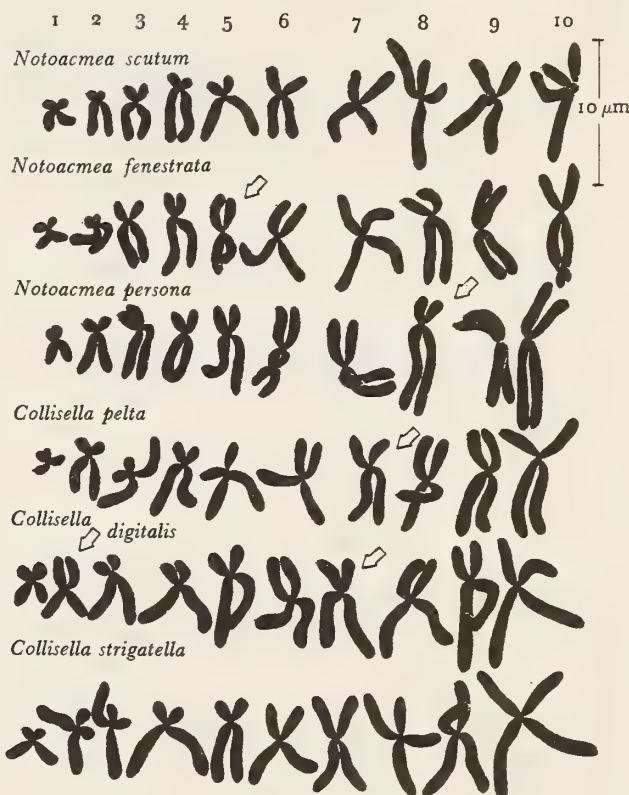 1 2 3 4 5 6 7 8 9 10
Notoacmea scutum
10 μm
Notoacmea fenestrata
Notoacmea persona
Collisella pelta
Collisella digitalis
Collisella strigatella